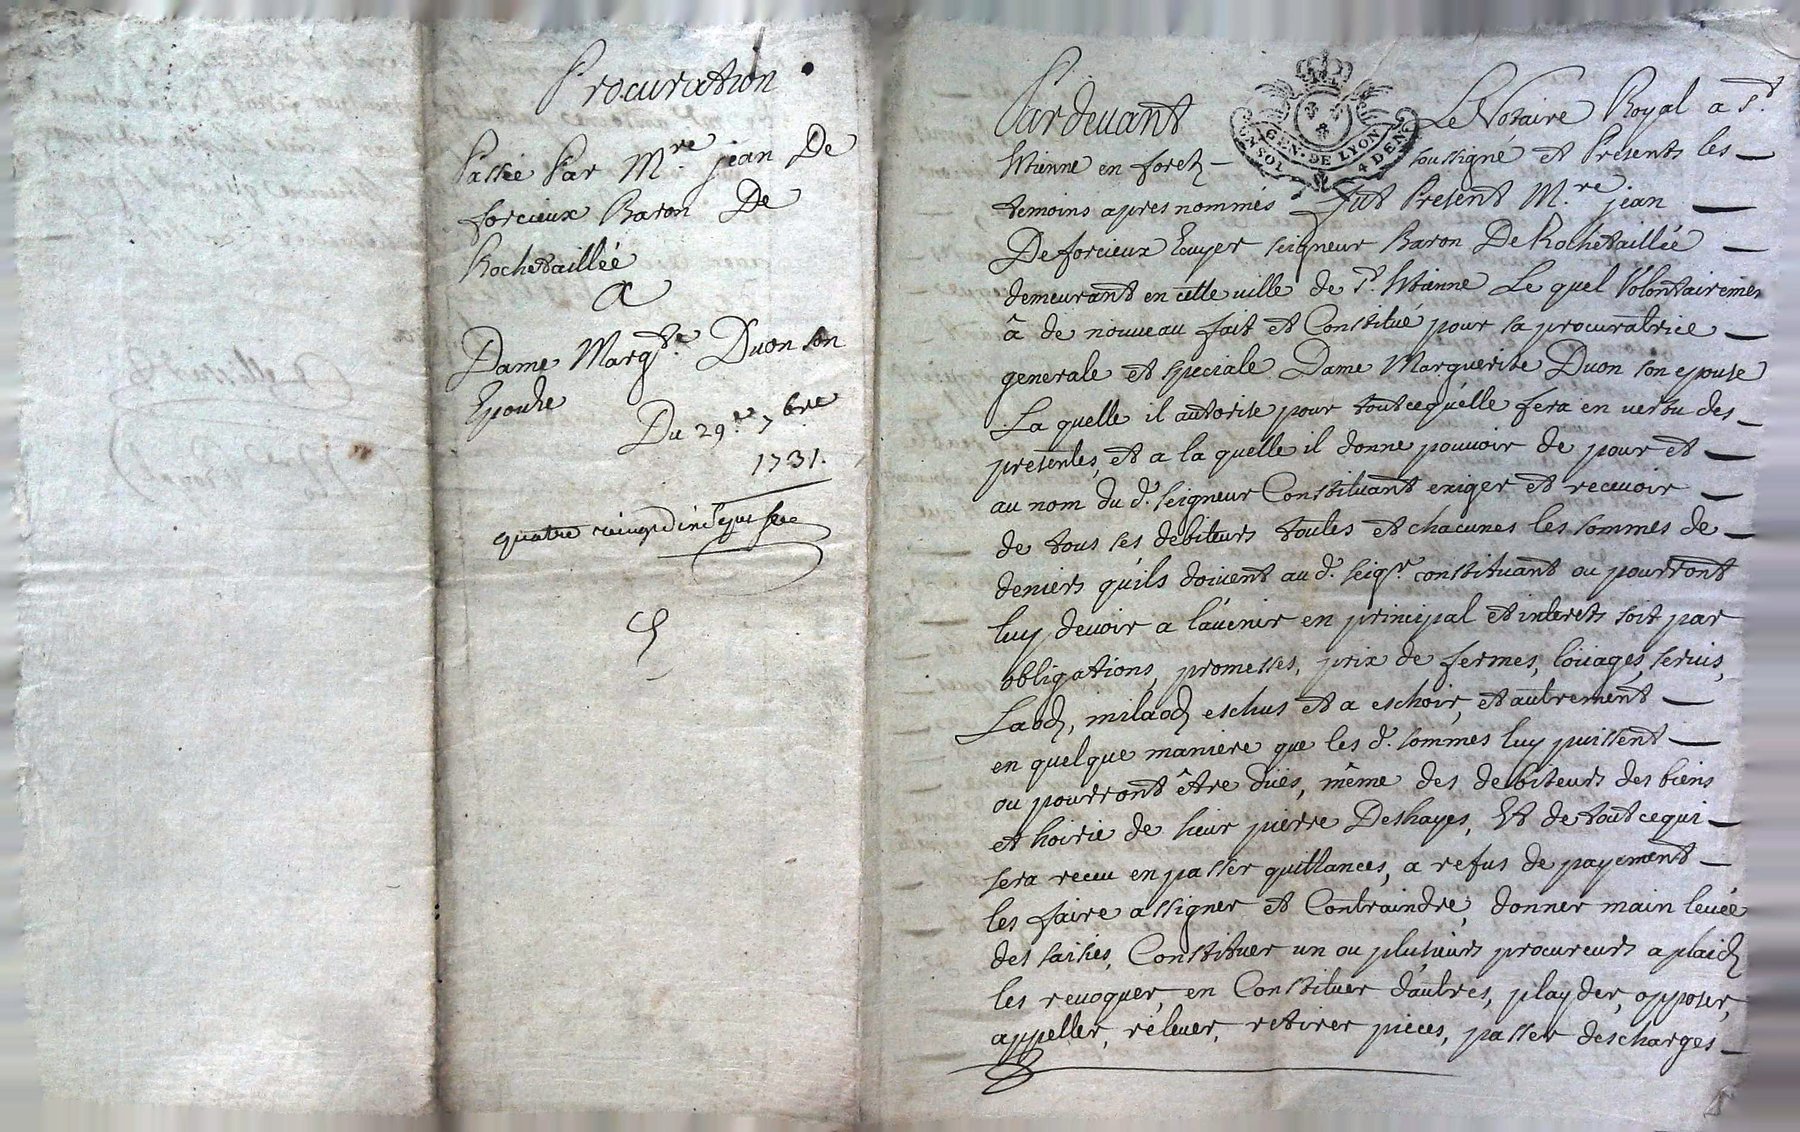 Procuration
Passée Par M.re jean De
forcieux Baron De
Rochetaillée
A
Dame Marg.te Duon son
Epouse
Du 29.e 7.bre
1731.
quatre vingt dix
Pardevant Le Notaire Royal a S.t
GEN. DE LYON
UN SOL 4 DEN.
Etienne en forez soussigné et Présents les
temoins apres nommés fut Present M.re jean
De forcieux Ecuyer seigneur Baron De Rochetaillée
demeurant en cette ville de S.t Etienne Le quel Volontairemen
â de nouveau fait et Constitué pour sa procuratrice
generale et speciale Dame Marguerite Duon son epouse
La quelle il autorise pour tout cequ'elle fera en vertu des
presentes, et a la quelle il donne pouvoir de pour et
au nom du d.t seigneur Constituant exiger et recevoir
de tous ses debiteurs toutes et chacunes les sommes de
deniers qu'ils doivent au d.t seig.r constituant ou pourront
luy devoir a l'avenir en principal et interets soit par
obligations, promesses, prix de fermes, loüages, servis,
Laods, milaods eschus et a eschoir, et autrement
en quelque maniere que les d. sommes luy puissent
ou pourront être düës, même des debiteurs des biens
et hoirie de sieur pierre Deshayes, Et de tout cequi
sera receu en passer quittances, a refus de payement
les faire assigner et Contraindre, donner main levée
des saisies, Constituer un ou plusieurs procureurs a plaids
les revoquer, en Constituer d'autres, playder, opposer,
appeller, rélever, retirer pieces, passer descharges